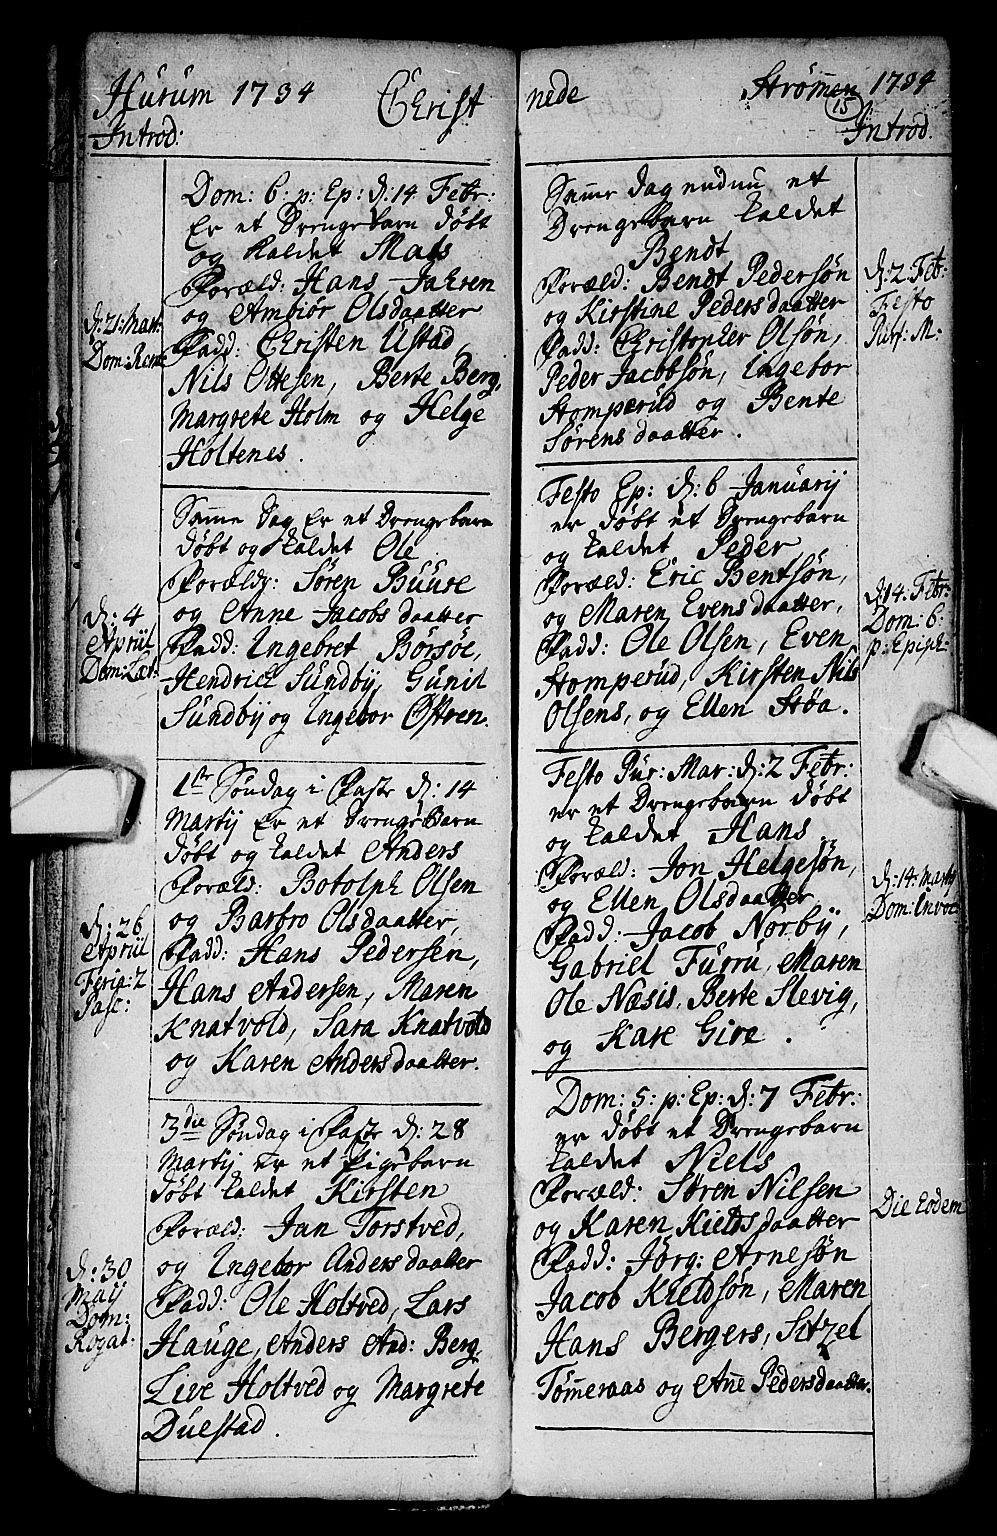 Hurum 1734 Christ
Introd:
Dom: 6. p: Ep: d: 14 Febr:
Er et Drengebarn døbt
og kaldet Mats
Foræld: Hans Jahren
og Ambiør Olsdaatter
Fadd: Christen Ustad,
Nils Ottesen, Berte Berg,
Margrete Holm og Helge
Holtenes.
d: 21: Mart:
Dom: Remi
Samme Dag Er et Drengebarn
døbt og kaldet Ole
Forældr: Søren Buuse
og Anne Jacobsdaatter
Fadd: Ingebret Børsøe,
Hendrich Sundby, Gunil
Sundbÿ og Ingebor Østren.
d: 4
Apriil
Dom: Læt:
1ste Søndag i Faste d: 14
Martij Er et Drengebarn
døbt og kaldet Anders
Foræld: Botolph Olsen
og Barbro Olsdaatter,
Fadd: Hans Pedersen,
Hans Andersen, Maren
Knatvold, Sara Knatvold
og Karen Andersdaatter.
d: 26
Apriil
Feria: 2
Pasc:
3die Søndag i Faste d: 28
Martij er et Pigebarn
døbt kaldet Kirsten
Foræld: Jan Torstved,
og Ingebor Andersdaatter
Fadd: Ole Holtved, Lars
Hauge, Anders And: Berg,
Live Holtved og Margrete
Duestad.
d: 30
Maij
Dom:
Rogat:
nede Strømmen 1734
15
Introd.
Samme dag endnu et
Drengebarn kaldet
Bendt
Foræld: Bendt Pedersøn
og Kirstine Pedersdaatter
Fadd: Christopher Olsøn,
Peder Jacobsøn, Ingebor
Stomperud og Bente
Sørensdaatter.
d: 2 Feb:
Festo
Purf: M:
Festo Ep: d: 6 Januarij
er døbt et Drengebarn
og kaldet Peder
Foræld: Eric Bentsøn,
og Maren Evensdaatter,
Fadd: Ole Olsen, Even
Stomperud, Kirsten Nils
Olsens, og Ellen Støa.
d: 14: Febr:
Dom: 6.
p: Epiph:
Festo Pur: Mar: d: 2 Febr:
er et Drengebarn døbt
og kaldet Hans.
Foræld: Jon Helgesøn,
og Ellen Olsdaatter,
Fadd: Jacob Norbÿ,
Gabriel Furru, Maren
Ole Næsis, Berte Slevig,
og Kare Giæ.
d: 14: Martij
Dom: Invoc:
Dom: 5: p: Ep: d: 7 Febr:
er døbt et Drengebarn
kaldet Niels
Foræld: Søren Nilsen
og Karen Kieldsdaatter
Fadd: Jørg: Arnesøn
Jacob Kieldsøn, Maren
Hans Bergers, Sitzel
Tømmeraas og Anne Pedersdaatter.
Die Eodem